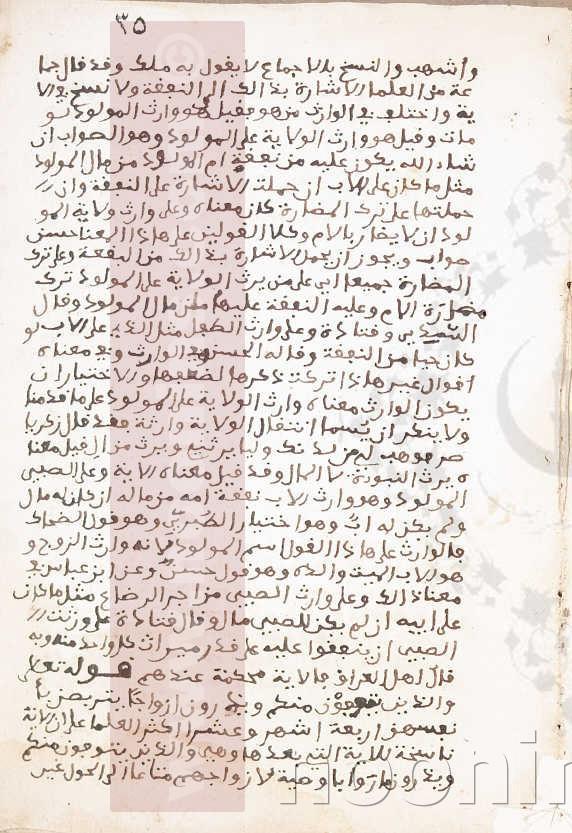 ٣٥
وأشهب والنسخ بالاجماع لا يقول به ملك وقد قال جما
عة من العلما الاشارة بذالك الى النفقة ولا نسخ في الا
ية واختلف في الوارث من هو فقيل هو وارث المولود لو
مات وقيل هو وارث الولاية على المولود وهو الصواب ان
شاء الله يكون عليه من نفقة ام المولود من مال المولود
مثل ما كان على الاب ان حملت الاشارة على النفقة وان
حملتها على ترك المضارة كان معناه وعلى وارث ولاية المو
لود ان لا يضار بالام وكلا القولين على هاذا المعنا حسن
صواب ويجوز ان تحمل الاشارة بذالك من النفقة وعلى ترك
المضارة جميعا اي على من يرث الولاية على المولود ترك
مضارة الام وعليه النفقة عليها من مال المولود وقال
السدي وقتادة وعلى وارث الطفل مثل الذي على الاب لو
كان حيا من النفقة وقاله الحسن وفي الوارث وفي معناه
اقوال غير هاذا تركت ذكرها لضعفها والاختيار ان
يكون الوارث معناه وارث الولاية على المولود على ما قدمنا
ولا ينكر ان يسما انتقال الولاية وارثة فقد قال زكريا
فهب لي من لدنك وليا يرثني ويرث من ال قيل معنا
ه يرث النبوءة لا المال وقد قيل معناه الاية وعلى الصبي
المولود وهو وارث الاب نفقة امه من ماله ان كان له مال
ولم يكن له اب وهو اختيار الطبري وهو قول الضحاك
فالوارث على هاذا القول اسم المولود لانه وارث الزوج و
هو الاب الميت والده وهو قول حسن وعن ابن عباس في
معنا ذالك وعلى وارث الصبي من اجر الرضاع مثل ما كان
على ابيه ان لم يكن للصبي مال وقال قتادة على ورثة
الصبي ان ينفقوا عليه على قدر ميراث كل واحد منه وبه
قال اهل العراق فالاية محكمة عندهم قوله تعلى
والذين يتوفون منكم ويذرون ازواجا يتربصن بأ
نفسهن اربعة اشهر وعشرا اكثر العلما على ان الاية
ناسخة للاية التي بعدها وهي والذين يتوفون منكم
ويذرون ازواجا وصية لازواجهم متاعا الى الحول غير
noonin